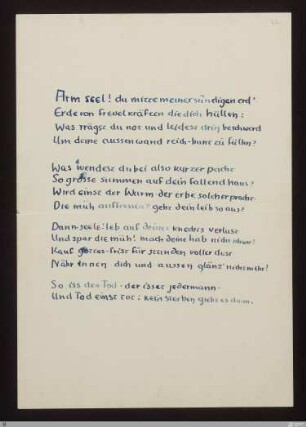 Arm seel! du mitte meiner sündigen erd'
Erde von frevelkräften die dich hüllen:
Was trägst du not und leidest streng beschwerd
Um deine aussenwand reich-bunt zu füllen?
Was wendest du bei also kurzer pacht
So grosse summen auf dein fallend haus?
Wird einst der wurm der erbe solcher pracht
Die müh auffressen? geht dein leib so aus?
Dann · seele! leb auf deines knechts verlust
Und spar die müh! mach deine hab nicht
Kauf gottes-frist für stunden voller dust
Nähr innen dich und aussen glänz' nicht mehr!
So iss den Tod · der isset jedermann ·
Und Tod einst tot: kein sterben geht es dann.